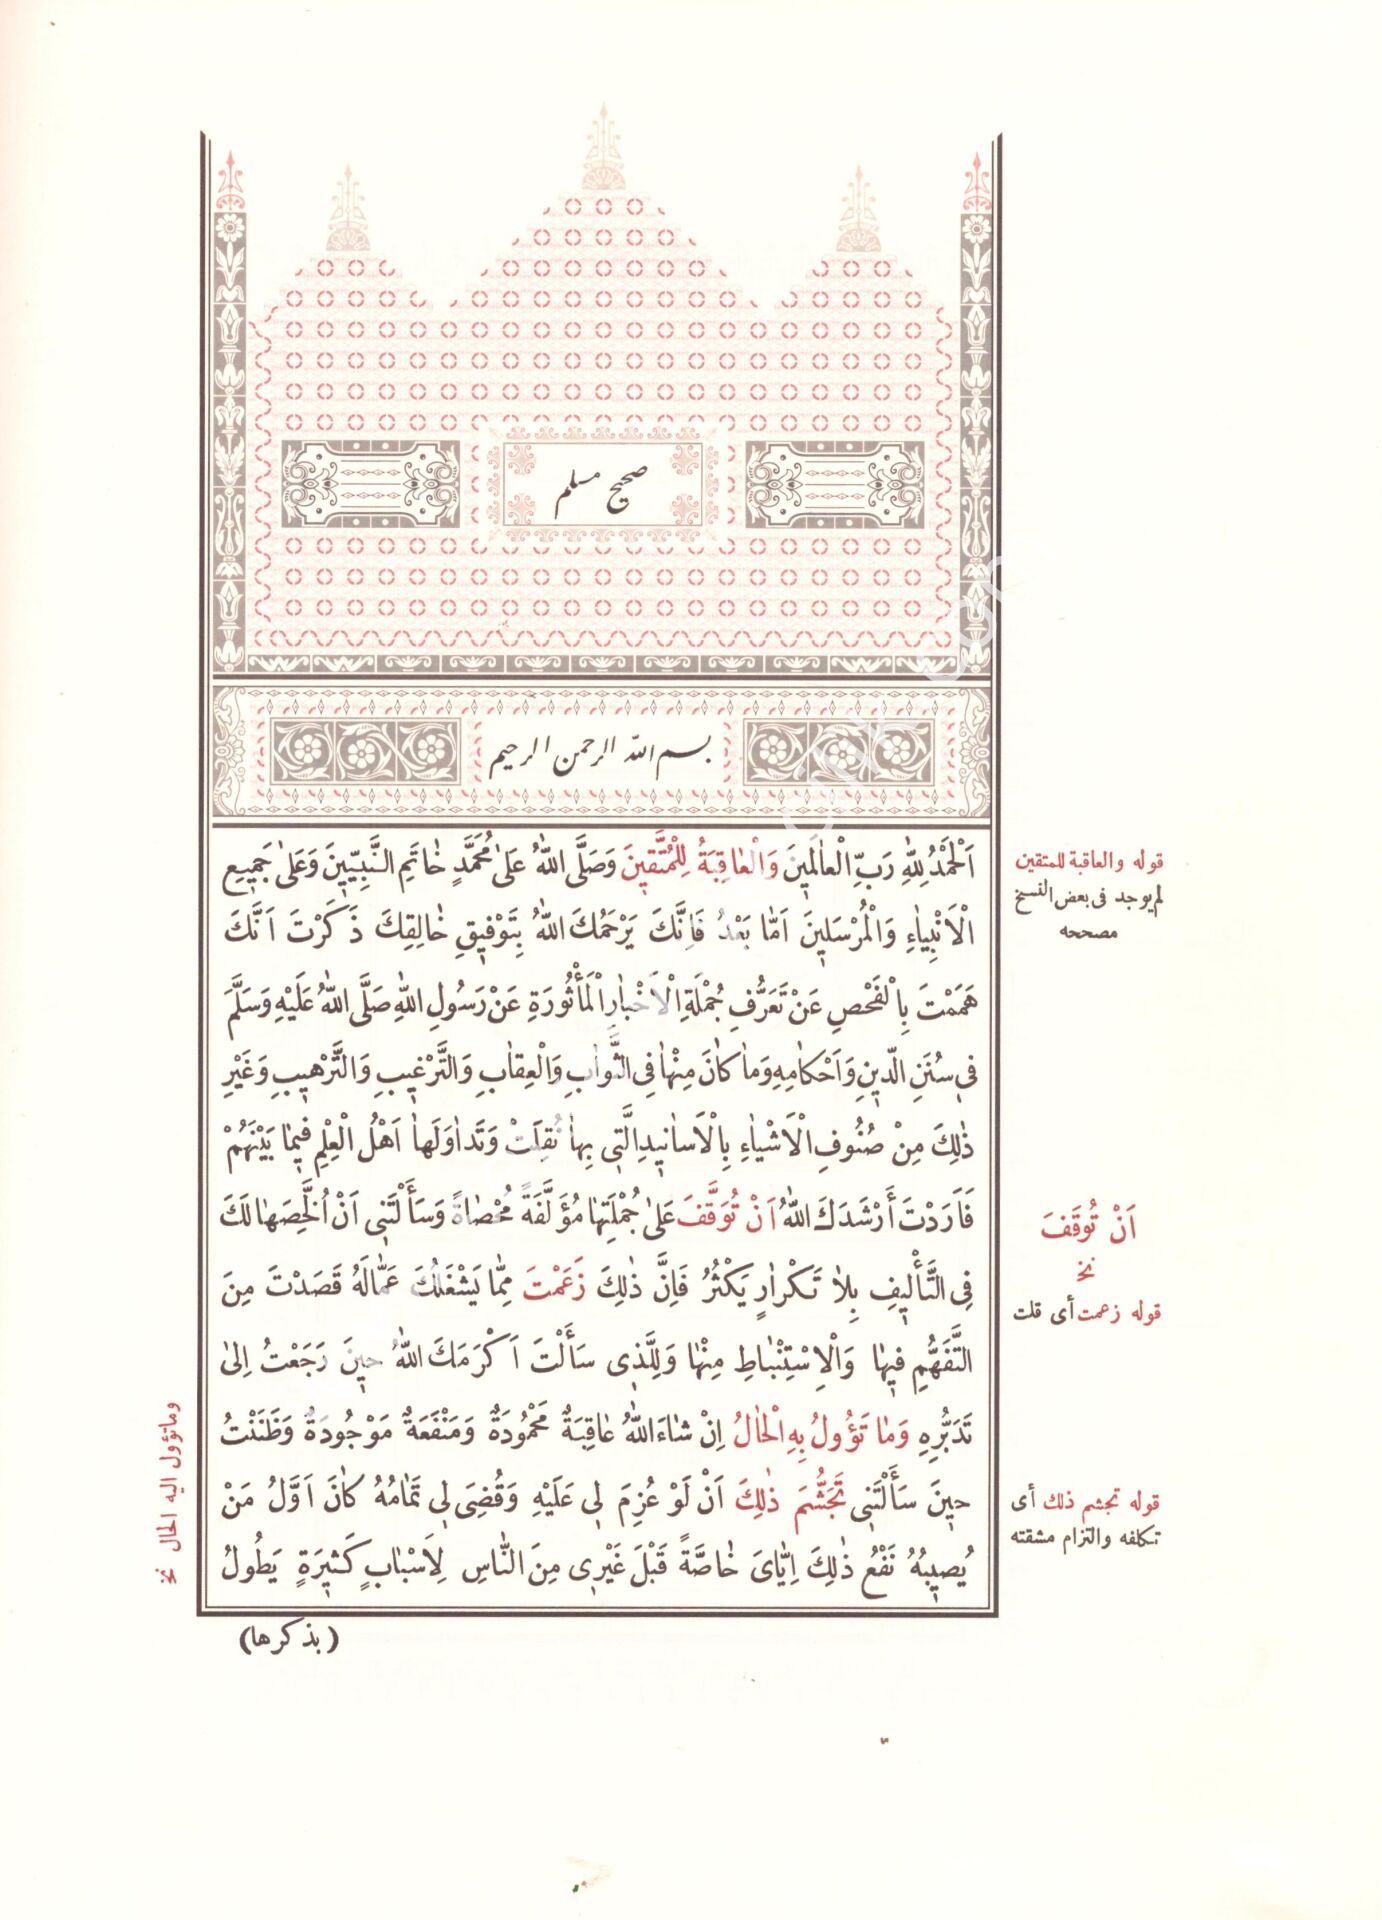 صحيح مسلم
بسم الله الرحمن الرحيم
اَلْحَمْدُ لِلّٰهِ رَبِّ الْعٰالَمِينَ وَالْعٰاقِبَةُ لِلْمُتَّقِينَ وَصَلَّى اللّٰهُ عَلىٰ مُحَمَّدٍ خٰاتَمِ النَّبِيّينَ وَعَلىٰ جَمِيعِ
الْاَنْبِيٰاءِ وَالْمُرْسَلِينَ اَمّٰا بَعْدُ فَاِنَّكَ يَرْحَمُكَ اللّٰهُ بِتَوْفِيقِ خٰالِقِكَ ذَكَرْتَ اَنَّكَ
هَمَمْتَ بِالْفَحْصِ عَنْ تَعَرُّفِ جُمْلَةِ الْاَخْبٰارِ الْمَأْثُورَةِ عَنْ رَسُولِ اللّٰهِ صَلَّى اللّٰهُ عَلَيْهِ وَسَلَّمَ
فِى سُنَنِ الدّينِ وَاَحْكٰامِهِ وَمٰا كٰانَ مِنْهٰا فِى الثَّوٰابِ وَالْعِقٰابِ وَالتَّرْغِيبِ وَالتَّرْهِيبِ وَغَيْرِ
ذٰلِكَ مِنْ صُنُوفِ الْاَشْيٰاءِ بِالْاَسٰانِيدِ الَّتِى بِهٰا نُقِلَتْ وَتَدٰاوَلَهٰا اَهْلُ الْعِلْمِ فِيمٰا بَيْنَهُمْ
فَاَرَدْتَ أَرْشَدَكَ اللّٰهُ اَنْ تُوَقَّفَ عَلىٰ جُمْلَتِهٰا مُؤَلَّفَةً مُحْصٰاةً وَسَأَلْتَنِى اَنْ اُلَخِّصَهٰا لَكَ
فِى التَّأْلِيفِ بِلاٰ تَكْرٰارٍ يَكْثُرُ فَاِنَّ ذٰلِكَ زَعَمْتَ مِمّٰا يَشْغَلُكَ عَمّٰا لَهُ قَصَدْتَ مِنَ
التَّفَهُّمِ فِيهٰا وَالْاِسْتِنْبٰاطِ مِنْهٰا وَلِلَّذِى سَأَلْتَ اَكْرَمَكَ اللّٰهُ حِينَ رَجَعْتُ اِلىٰ
تَدَبُّرِهِ وَمٰا تَؤُولُ بِهِ الْحٰالُ اِنْ شٰاءَ اللّٰهُ عٰاقِبَةٌ مَحْمُودَةٌ وَمَنْفَعَةٌ مَوْجُودَةٌ وَظَنَنْتُ
حِينَ سَأَلْتَنِى تَجَشُّمَ ذٰلِكَ اَنْ لَوْ عُزِمَ لِى عَلَيْهِ وَقُضِىَ لِى تَمٰامُهُ كٰانَ اَوَّلُ مَنْ
يُصِيبُهُ نَفْعُ ذٰلِكَ اِيّٰاىَ خٰاصَّةً قَبْلَ غَيْرِى مِنَ النّٰاسِ لِاَسْبٰابٍ كَثِيرَةٍ يَطُولُ
(بذكرها)
قوله والعاقبة للمتقين
لم يوجد فى بعض النسخ
مصححه
اَنْ تُوقَفَ
نخ
قوله زعمت أى قلت
قوله تجشم ذلك أى
تكلفه والتزام مشقته
وماتؤول اليه الحال نخ